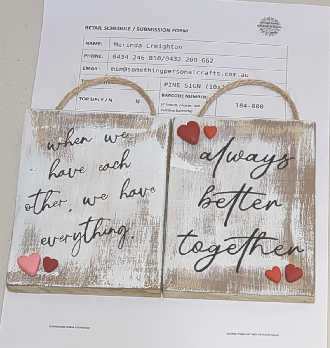 RETAIL SCHEDULE / SUBMISSION FORM
NAME: Merinda Creighton
PHONE: 0434 246 850/0432 200 662
EMAIL: mim@somethingpersonalcrafts.com.au
PINE SIGN (10x
TOP UP: Y / N N
BARCODE NUMBER:
184-008
when we
have each
other, we have
everything.
always
better
together